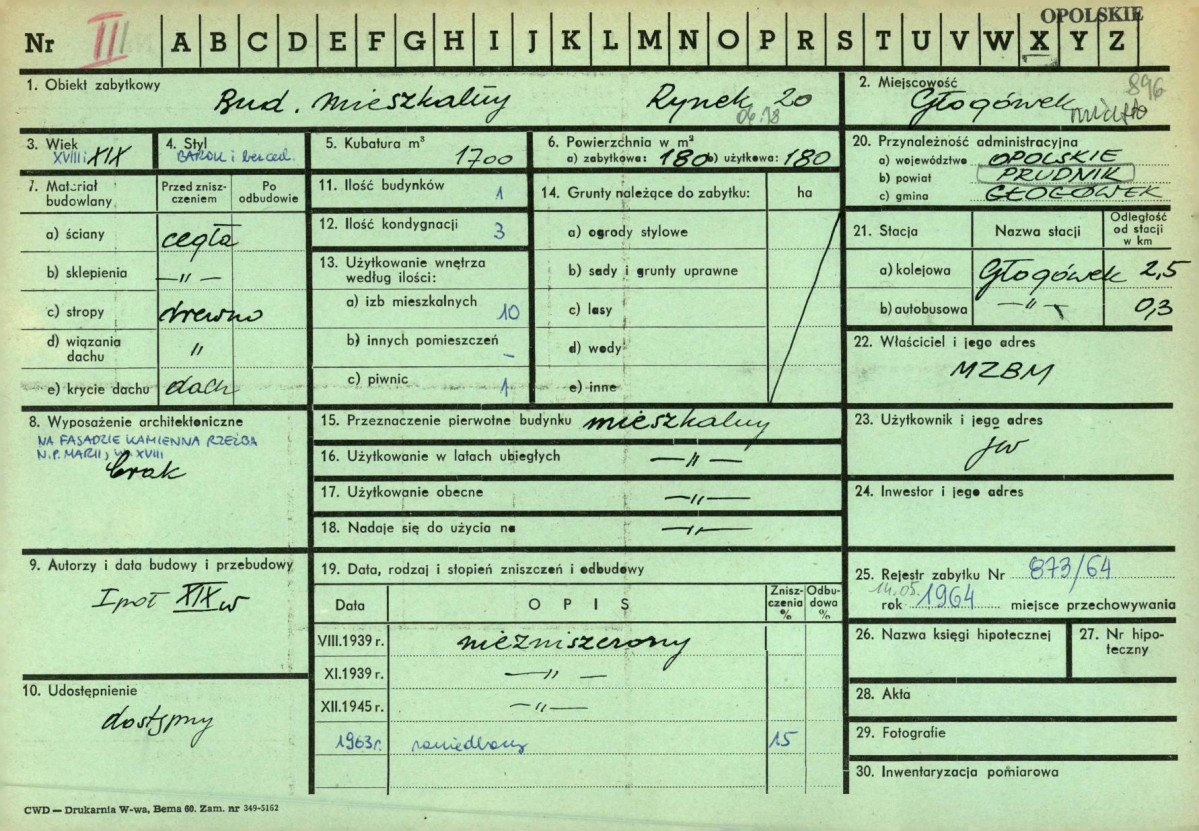 OPOLSKIE
Nr III A B C D E F G H I J K L M N O P R S T U V W X Y Z
1. Obiekt zabytkowy Bud. mieszkalny Rynek 20
2. Miejscowość Głogówek miasto 896
3. Wiek XVIII i XIX
4. Styl BAROK i
5. Kubatura m³ 1700
6. Powierzchnia w m²
a) zabytkowa: 180 b) użytkowa: 180
20. Przynależność administracyjna
a) województwo OPOLSKIE
b) powiat PRUDNIK
c) gmina GŁOGÓWEK
7. Materiał budowlany
Przed zniszczeniem
Po odbudowie
a) ściany cegła
b) sklepienia —〃—
c) stropy drewno
d) wiązania dachu 〃
e) krycie dachu dach
11. Ilość budynków 1
12. Ilość kondygnacji 3
13. Użytkowanie wnętrza według ilości:
a) izb mieszkalnych 10
b) innych pomieszczeń -
c) piwnic 1
14. Grunty należące do zabytku: ha
a) ogrody stylowe
b) sady i grunty uprawne
c) lasy
d) wody
e) inne
21. Stacja Nazwa stacji Odległość od stacji w km
a) kolejowa Głogówek 2,5
b) autobusowa —〃— 0,3
22. Właściciel i jego adres
MZBM
8. Wyposażenie architektoniczne
NA FASADZIE KAMIENNA RZEŹBA
N.P. MARII, W. XVIII
brak
15. Przeznaczenie pierwotne budynku mieszkalny
16. Użytkowanie w latach ubiegłych —〃—
17. Użytkowanie obecne —〃—
18. Nadaje się do użycia na —〃—
23. Użytkownik i jego adres
jw
24. Inwestor i jego adres
9. Autorzy i data budowy i przebudowy
I poł XIX w
19. Data, rodzaj i stopień zniszczeń i odbudowy
Data OPIS Zniszczenia % Odbudowa %
VIII.1939 r. niezniszczony
XI.1939 r. —〃—
XII.1945 r. —〃—
1963r. zaniedbany 15
10. Udostępnienie
dostępny
25. Rejestr zabytku Nr 873/64
14.05.
rok 1964 miejsce przechowywania
26. Nazwa księgi hipotecznej
27. Nr hipoteczny
28. Akta
29. Fotografie
30. Inwentaryzacja pomiarowa
CWD — Drukarnia W-wa, Bema 60. Zam. nr 349-5162